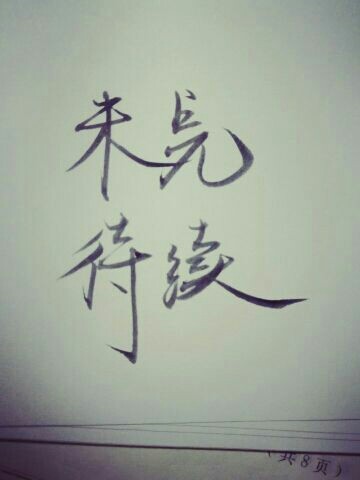 未完
待续
（共8页）